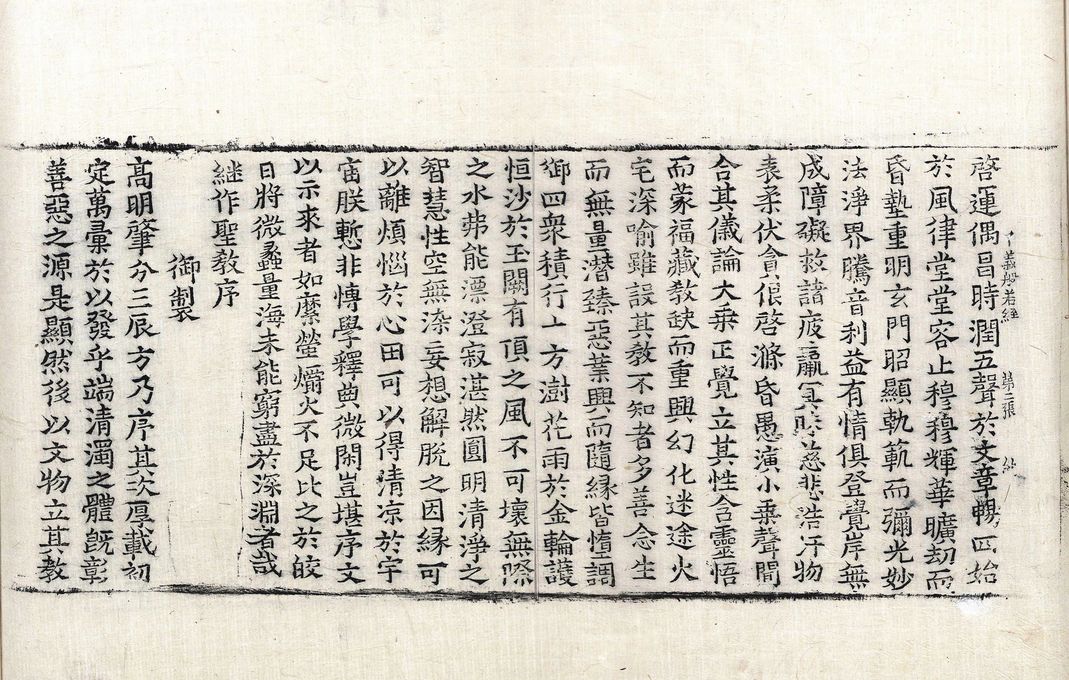 啓運偶昌時潤五聲於文章暢四始
於風律堂堂容止穆穆輝華曠劫而
昏墊重明玄門昭顯軌範而彌光妙
法淨界騰音利益有情俱登覺岸無
成障礙救諸疲羸冥慈悲浩汗物
表柔伏貪佷啓滌昏愚演小乗聲聞
合其儀論大乗正覺立其性含靈悟
而蒙福藏教缺而重興幻化迷途火
宅深喻雖設其教不知者多善念生
而無量潜臻惡業興而隨縁皆墮調
御四衆積行十方澍花雨於金輪護
恒沙於玉闕有頂之風不可壞無際
之水弗能漂澄寂湛然圓明清淨之
智慧性空無染妄想解脫之因縁可
以離煩惱於心田可以得清凉於宇
宙朕慙非博學釋典微閑豈堪序文
以示來者如縻螢爝火不足比之於皎
日將微蠡量海未能窮盡於深淵者哉
継作聖教序
御製
高明肇分三辰方乃序其次厚載初
定萬彙於以發乎端清濁之體既彰
善惡之源是顯然後以文物立其教
十義般若經 第二張